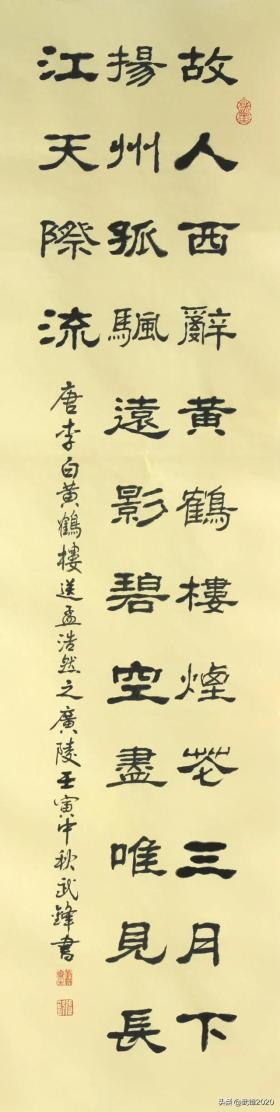 故人西辭黄鶴樓煙花三月下
揚州孤颿遠影碧空盡唯見長
江天際流
唐李白黄鶴樓送孟浩然之廣陵壬寅中秋武鋒書
头条 @武锋2020